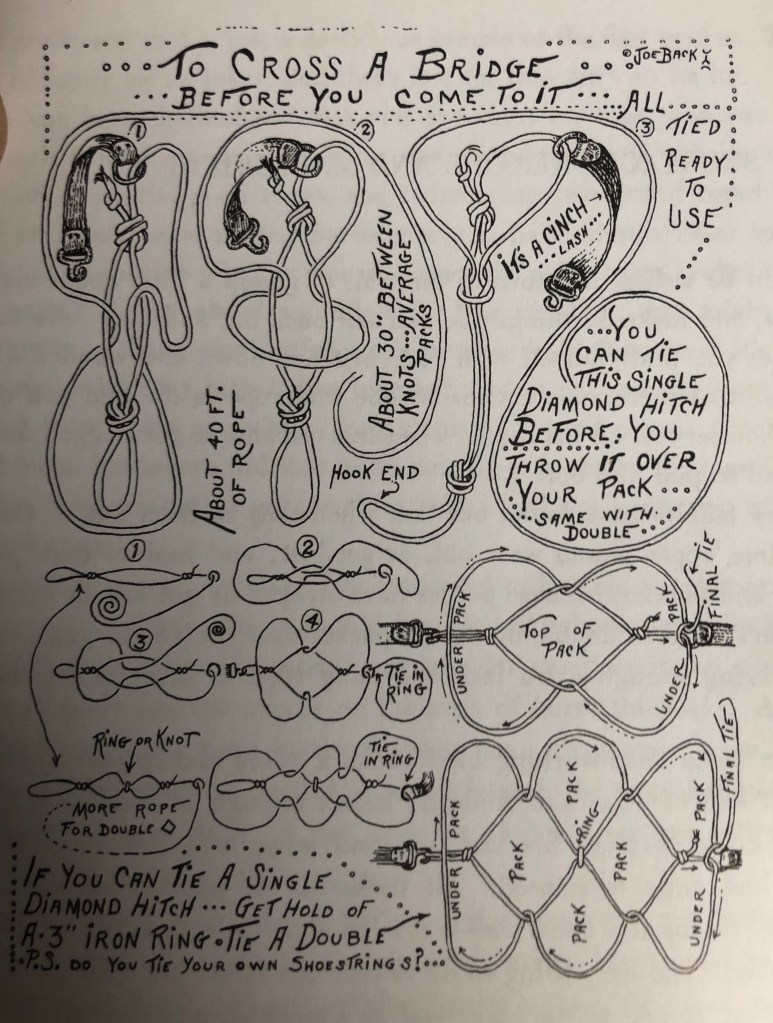 To Cross A Bridge
©JoeBack
...Before You Come To It...
All
Tied
Ready
To
Use
1
2
3
It's A Cinch
...Lash...
About 30" Between
Knots...Average
Packs
About 40 Ft.
of Rope
Hook End
...You
Can Tie
This Single
Diamond Hitch
Before: You
Throw It Over
Your Pack...
...Same With
Double...
1
2
3
4
Tie in
Ring
Under Pack
Top of
Pack
Under Pack
Final Tie
Ring or Knot
More Rope
For Double ◇
Tie
in Ring
Under Pack
Pack
Pack
Pack
Ring
Pack
Under Pack
Final Tie
If You Can Tie A Single
Diamond Hitch... Get Hold of
A·3" Iron Ring·Tie A Double
·P.S. Do You Tie Your Own Shoestrings?...